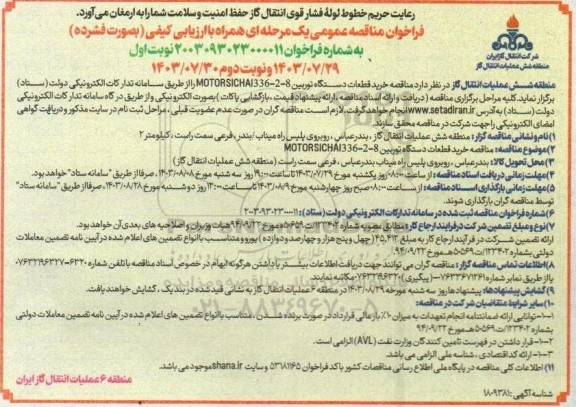 رعایت حریم خطوط لوله فشار قوی انتقال گاز حفظ امنیت و سلامت شما را به ارمغان می‌آورد.
فراخوان مناقصه عمومی یک مرحله ای همراه با ارزیابی کیفی (بصورت فشرده)
به شماره فراخوان ۲۰۰۳۰۹۳۰۲۳۰۰۰۰۱۱ نوبت اول
۱۴۰۳/۰۷/۲۹ و نوبت دوم ۱۴۰۳/۰۷/۳۰
شرکت انتقال گاز ایران
منطقه شش عملیات انتقال گاز
منطقه شش عملیات انتقال گاز در نظر دارد مناقصه خرید قطعات دستگاه توربین MOTORSICHAI336-2-8 را از طریق سامانه تدارکات الکترونیکی دولت (ستاد)
برگزار نماید. کلیه مراحل برگزاری مناقصه (دریافت و ارائه اسناد مناقصه، ارائه پیشنهاد قیمت، بازگشایی پاکات) بصورت الکترونیکی و از طریق درگاه سامانه تدارکات الکترونیکی
دولت (ستاد) به آدرس www.setadiran.ir انجام خواهد گرفت. لازم است مناقصه گران در صورت عدم عضویت قبلی، مراحل ثبت نام در سایت مذکور و دریافت گواهی
امضای الکترونیکی را جهت شرکت در مناقصه محقق سازند.
۱) نام و نشانی مناقصه گزار: منطقه شش عملیات انتقال گاز، بندرعباس، روبروی پلیس راه میناب بندر، فرعی سمت راست، کیلومتر ۲
۲) موضوع مناقصه: مناقصه خرید قطعات دستگاه توربین MOTORSICHAI336-2-8
۳) محل تحویل کالا: بندرعباس، روبروی پلیس راه میناب بندرعباس، فرعی سمت راست (منطقه شش عملیات انتقال گاز)
۴) مهلت زمانی دریافت اسناد مناقصه: از ساعت ۰۸:۰۰ روز یکشنبه مورخ ۱۴۰۳/۰۷/۲۹ تا ساعت ۱۹:۰۰ روز سه شنبه مورخ ۱۴۰۳/۰۸/۰۸، صرفا از طریق "سامانه ستاد" خواهد بود.
۵) مهلت زمانی بارگذاری اسناد مناقصه: از ساعت ۰۸:۰۰ صبح روز چهارشنبه مورخ ۱۴۰۳/۰۸/۰۹ تا ساعت ۱۲:۰۰ روز دوشنبه مورخ ۱۴۰۳/۰۸/۲۸، صرفا از طریق "سامانه ستاد"
توسط مناقصه گران بارگذاری شوند.
۶) شماره فراخوان مناقصه ثبت شده در سامانه تدارکات الکترونیکی دولت (ستاد):
۷) نوع و مبلغ تضمین شرکت در فرآیند ارجاع کار: مطابق مصوبه شماره ۱۲۳۴۰۲/ت۵۰۶۵۹ه مورخ ۹۴/۰۹/۲۲ هیات وزیران و اصلاحیه های بعدی آن خواهد بود.
ارائه تضمین شرکت در فرآیند ارجاع کار به مبلغ ۴۵,۴۱۲ (چهل و پنج هزار و چهارصد و دوازده) یورو و متناسب با انواع تضمین های اعلام شده در آیین نامه تضمین معاملات
دولتی به شماره ۱۲۳۴۰۲/ت۵۰۶۵۹ه مورخ ۹۴/۰۹/۲۲
۸) اطلاعات تماس مناقصه گزار: مناقصه گران می توانند جهت دریافت اطلاعات بیشتر یا داشتن هرگونه ابهام در خصوص اسناد مناقصه با تلفن شماره
یا از طریق نمابر شماره مکاتبه نمایند.
۹) گشایش پیشنهادها: پیشنهادها روز سه شنبه مورخه ۱۴۰۳/۰۸/۲۹ در منطقه ۶ عملیات انتقال گاز به نشانی قید شده در بند یک، گشایش خواهند یافت.
۱۰) سایر شرایط متقاضیان شرکت در مناقصه:
۱-۱۰- توانایی ارائه ضمانتنامه انجام تعهدات به میزان ۱۰٪ از مبلغ مالی قرارداد در صورت برنده شدن، متناسب با انواع تضمین های اعلام شده در آیین نامه تضمین معاملات دولتی
بشماره ۱۲۳۴۰۲/ت۵۰۶۵۹ه مورخ ۹۴/۰۹/۲۲
۲-۱۰- قرار داشتن در فهرست تامین کنندگان وزارت نفت (AVL) الزامی است.
۳-۱۰- ارائه کد اقتصادی، شناسه ملی الزامی می باشد.
۱۱) اطلاعات کلی مناقصه در پایگاه ملی اطلاع رسانی مناقصات کشور با کد فراخوان ۵۳۱۸۱۱۶۵ و سایت shana.ir موجود می باشد.
شناسه آگهی: ۱۸۰۹۳۸۱
منطقه ۶ عملیات انتقال گاز ایران